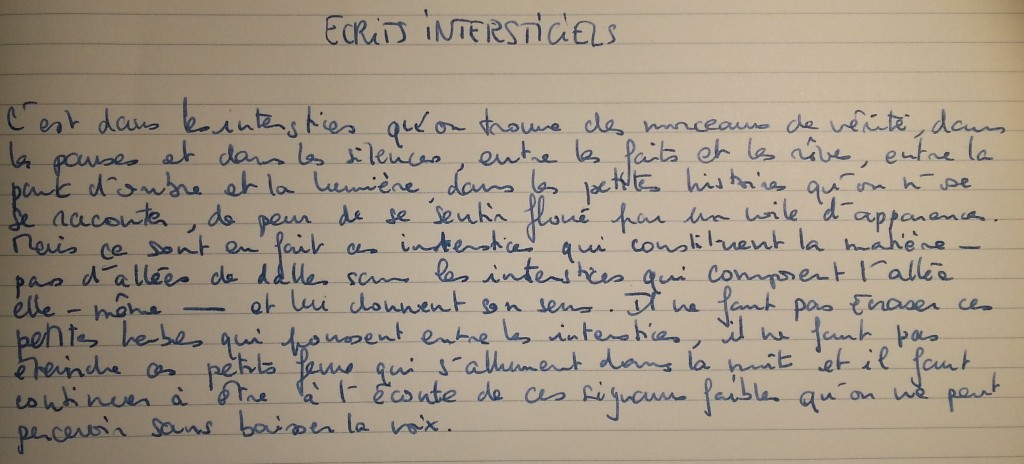 ECRITS INTERSTICIELS
C'est dans les interstices qu'on trouve des morceaux de vérité, dans
les pauses et dans les silences, entre les faits et les rêves, entre la
part d'ombre et la lumière, dans les petites histoires qu'on n'ose
se raconter, de peur de se sentir floué par un voile d'apparences.
Mais ce sont en fait ces interstices qui constituent la matière -
pas d'allées de dalles sans les interstices qui composent l'allée
elle-même — et lui donnent son sens. Il ne faut pas écraser ces
petites herbes qui poussent entre les interstices, il ne faut pas
éteindre ces petits feux qui s'allument dans la nuit et il faut
continuer à être à l'écoute de ces signaux faibles qu'on ne peut
percevoir sans baisser la voix.